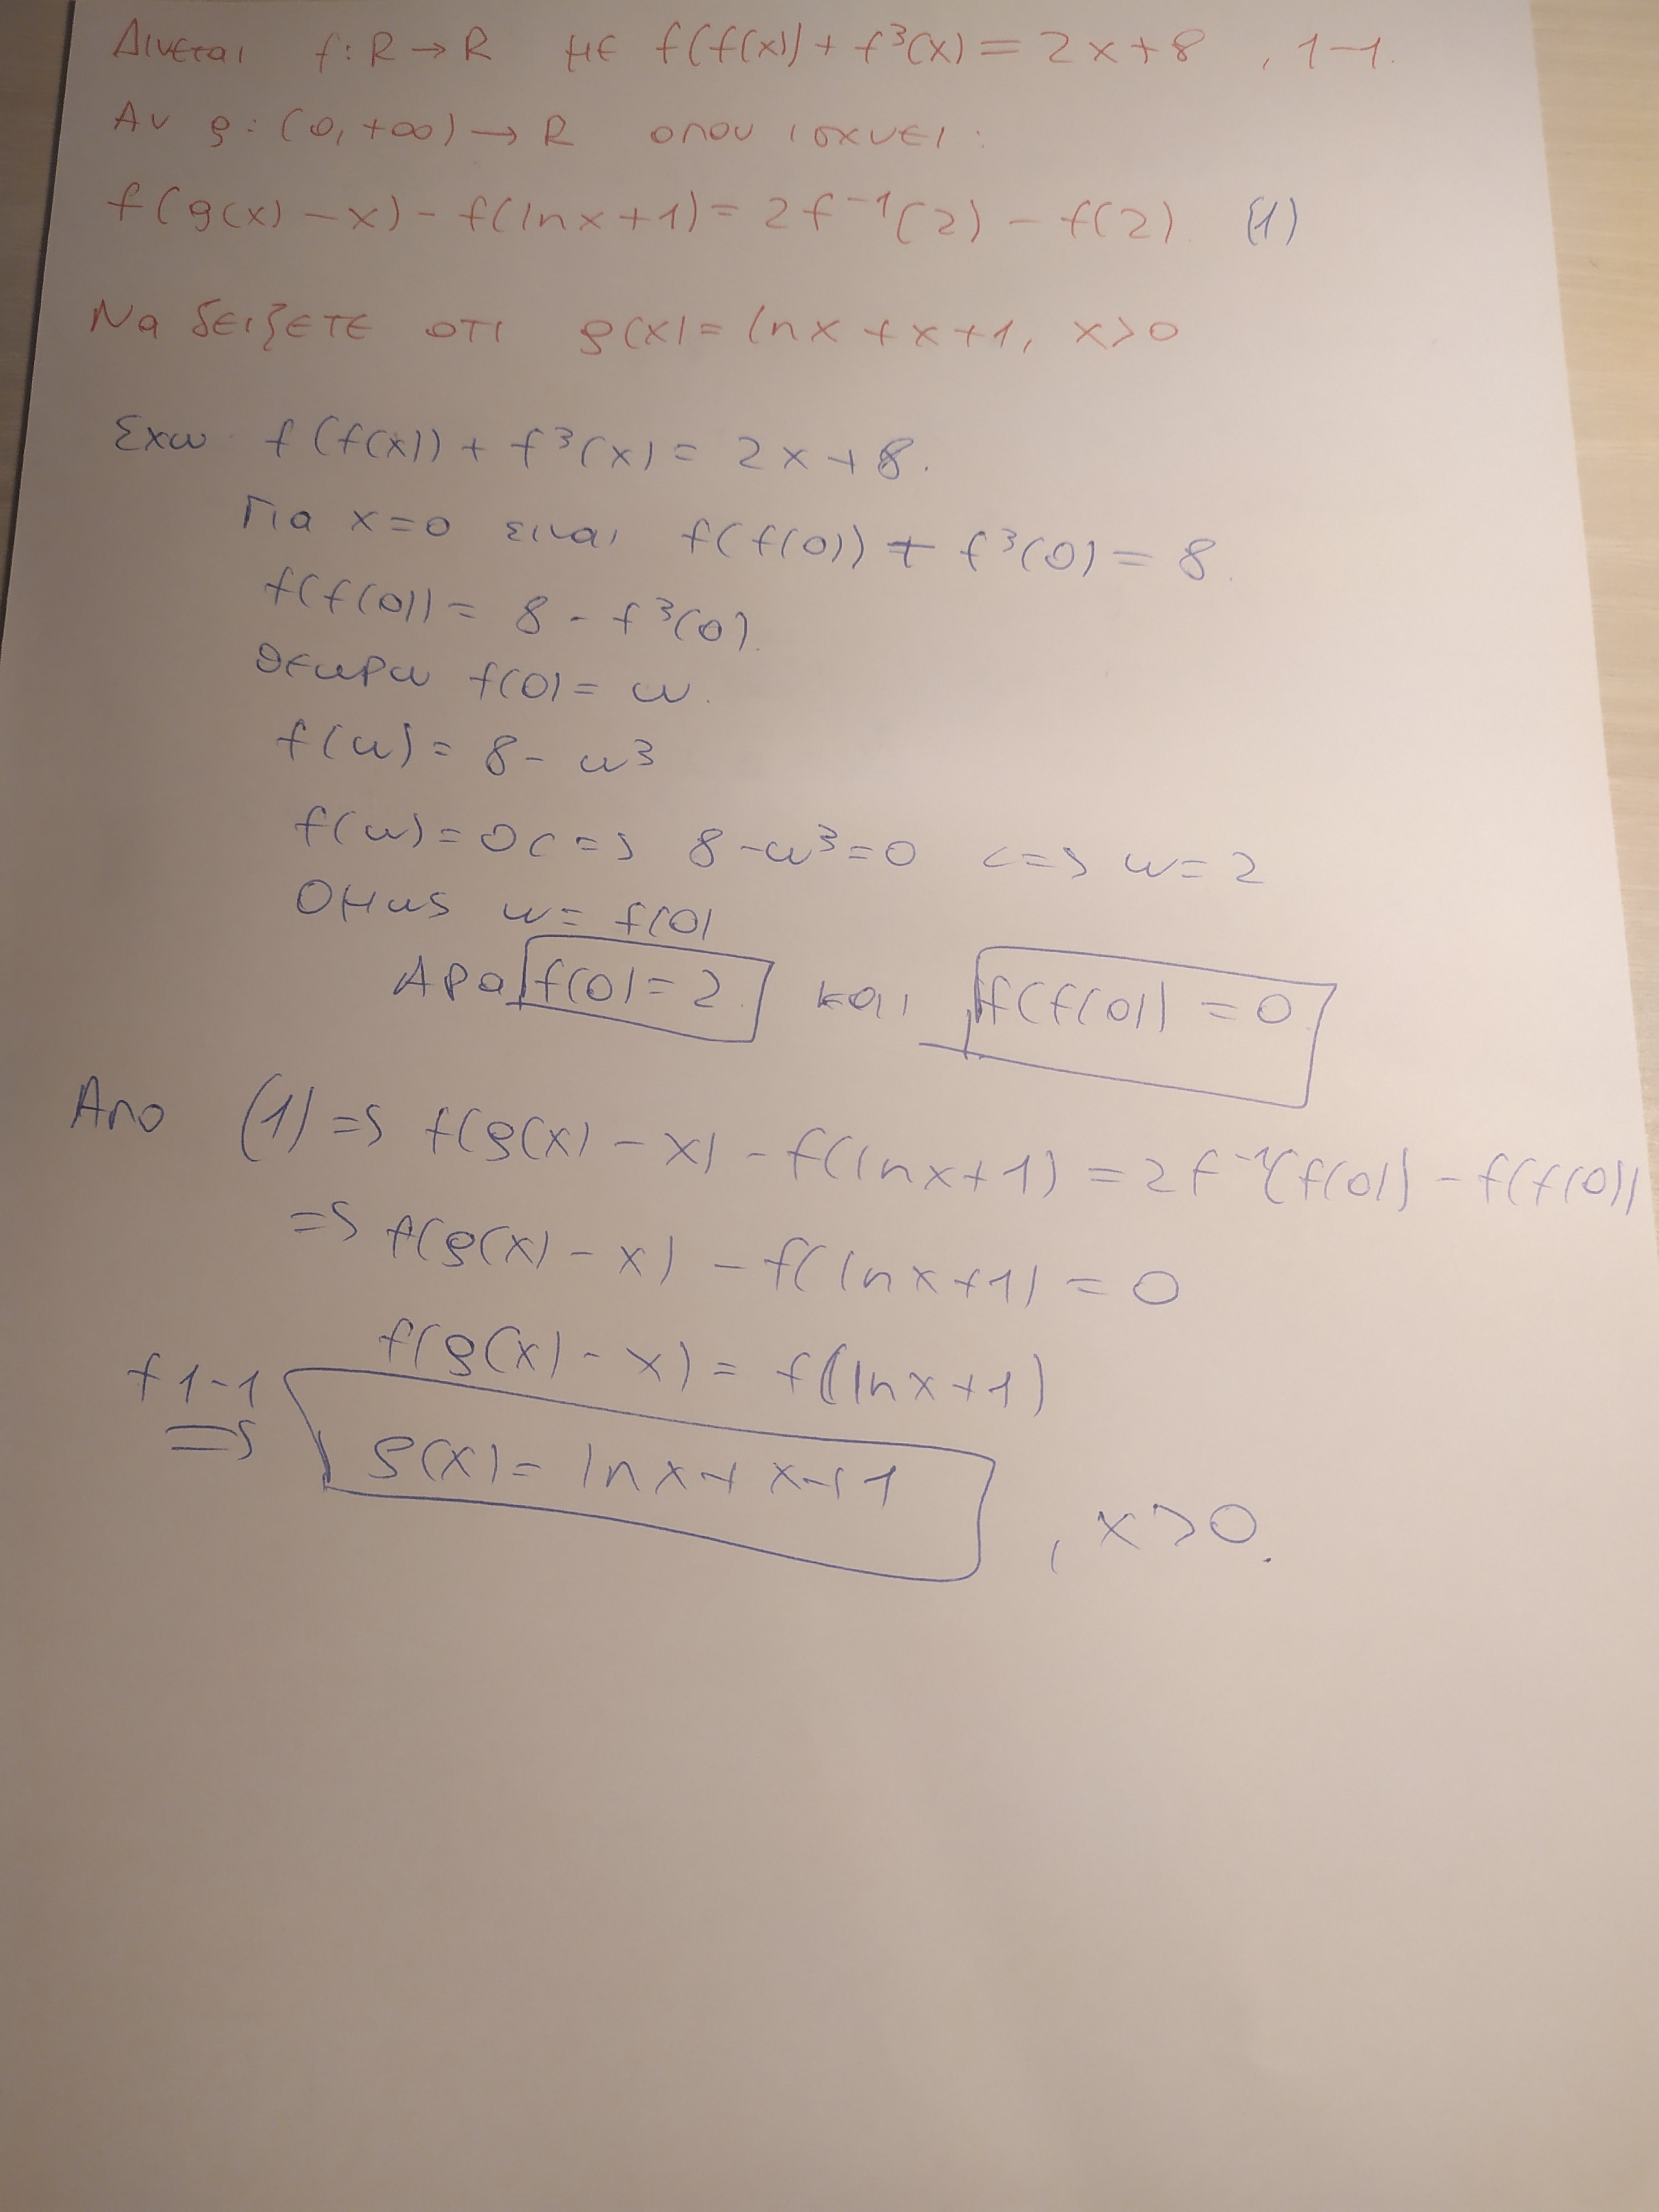 Δινεται f: R → R με f(f(x)) + f³(x) = 2x+8 , 1-1.
Αν g: (0, +∞) → R οπου ισχυει:
f(g(x) - x) - f(lnx+1) = 2f⁻¹(2) - f(2). (1)
Να δειξετε οτι g(x) = lnx + x + 1, x>0
Εχω f(f(x)) + f³(x) = 2x+8.
Για x=0 ειναι f(f(0)) + f³(0) = 8.
f(f(0)) = 8 - f³(0).
Θεωρω f(0) = ω.
f(ω) = 8 - ω³
f(ω) = 0 <=> 8-ω³=0 <=> ω=2
Ομως ω = f(0)
Αρα f(0) = 2 και f(f(0)) = 0
Απο (1) => f(g(x) - x) - f(lnx+1) = 2f⁻¹(f(0)) - f(f(0))
=> f(g(x) - x) - f(lnx+1) = 0
f(g(x) - x) = f(lnx+1)
f 1-1
=> g(x) = lnx + x + 1 , x>0.